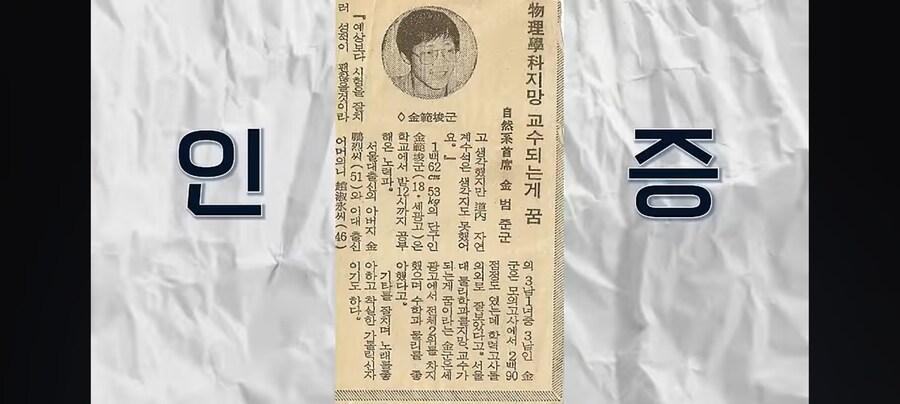 인 증
物理學科지망 교수되는게 꿈
自然系首席 金 범 준군
◇金範埈군
『예상보다 시험을 잘치
러 성적이 괜찮을것이라
고 생각했지만 道内 자연
계수석은 생각지도 못했어
요。』
1백62㎝ 53㎏의 단구인
金範埈군(18·세광고)은
학교에서 밤12시까지 공부
해온 노력파。
서울대출신의 아버지 金
鵬烈씨(51)와 이대 출신
어머의니 趙淑永씨(46)
의 3남1녀중 3남인 金
군은 모의고사에서 2백90
점정도 였는데 학력고사는
의외로 잘보았다고。 서울
대 물리학과를지망、교수가
되는게 꿈이라는 金군은 세
광고에서 전체2위를 차지
했으며 수학과 물리를 좋
아했다고。
기타를 잘치며 노래를좋
아하고 착실한 가톨릭신자
이기도 하다。